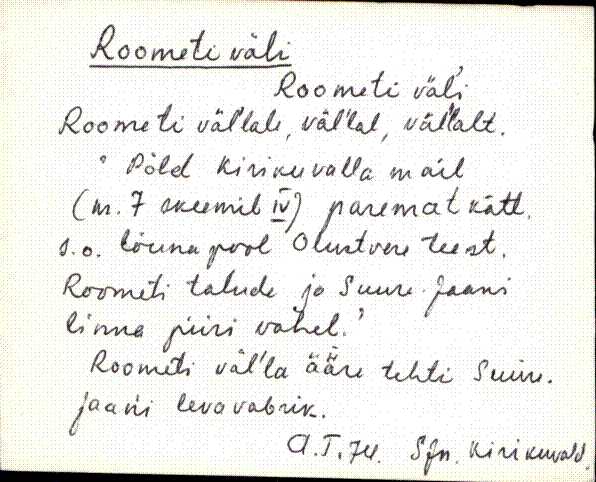 Roometi väli
Roometi väl'i
Roometi väl'lale, väl'lal, väl'lalt.
Põld Kirikuvalla mail
(nr. 7 skeemil IV) paremat kätt.
s.o. lõuna pool Olustvere teest.
Roometi talude ja Suure-Jaani
linna piiri vahel.
Roometi väl'la ääre tehti Suure-
Jaani levavabrik.
A.T. Sjn. Kirikuvald.